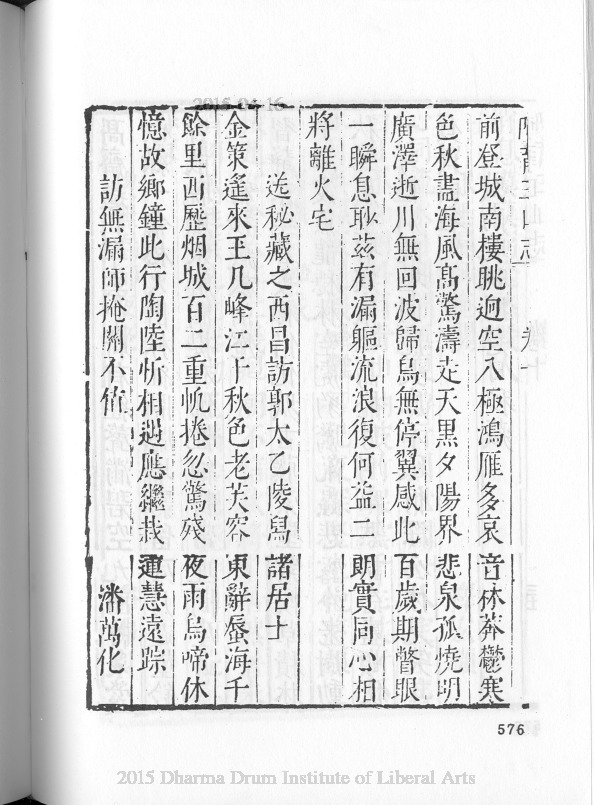 2015-04-16
阿育王山志　卷十
前登城南樓眺迥空八極鴻雁多哀音林莽鬱寒
色秋盡海風高驚濤走天黑夕陽界悲泉孤燒明
廣澤逝川無回波歸鳥無停翼感此百歲期瞥眼
一瞬息耿茲有漏軀流浪復何益二朗實同心相
將離火宅
送秘藏之西昌訪郭太乙陵舄諸居士
金策遙來王几峰江干秋色老芙容東辭蜃海千
餘里西歷烟城百二重帆捲忽驚殘夜雨烏啼休
憶故鄉鐘此行陶陸忻相遇應繼栽蓮慧遠踪
訪無漏師掩關不值　潘萬化
576
2015 Dharma Drum Institute of Liberal Arts